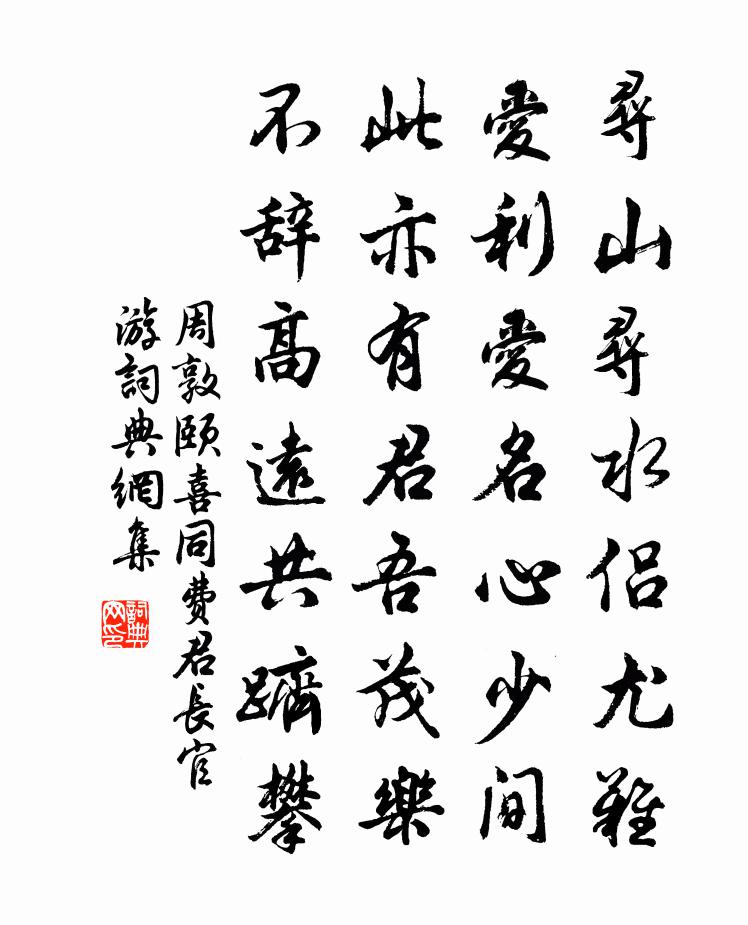 尋山尋水侶尤難
愛利愛名心少間
此亦有君吾茂樂
不辞高遠共躋攀
周敦頤喜同費君長官
游詞典網集
詞典
网印